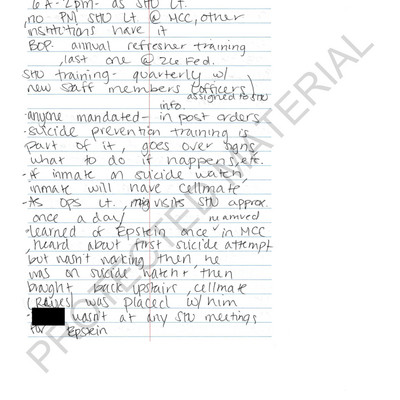 6A-2pm- as SHU Lt.
no PM SHU Lt @ MCC, other
institutions have it
BOP- annual refresher training
, last one @ 26 Fed.
SHU training- quarterly w/
new staff members (officers)
assigned to SHU
info.
-anyone mandated- in post orders
-suicide prevention training is
part of it, goes over signs
what to do if happens, etc.
-if inmate on suicide watch,
inmate will have cellmate
-As OPS Lt. visits SHU approx.
once a day/
-learned of Epstein once in MCC
, heard about first suicide attempt
but wasn't working then, he
was on suicide watch & then
bought back upstairs, cellmate
was placed w/ him
wasn't at any SHU meetings
for Epstein
PROTECTED MATERIAL